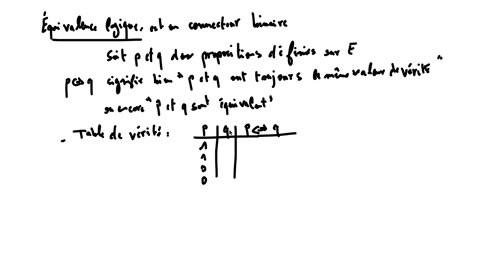 Équivalence logique, est un connecteur binaire
Soit p et q deux propositions définies sur E
p⇔q signifie bien "p et q ont toujours la même valeur de vérité"
ou encore "p et q sont équivalent"
- Table de vérité : p | q | p⇔q
1
1
0
0